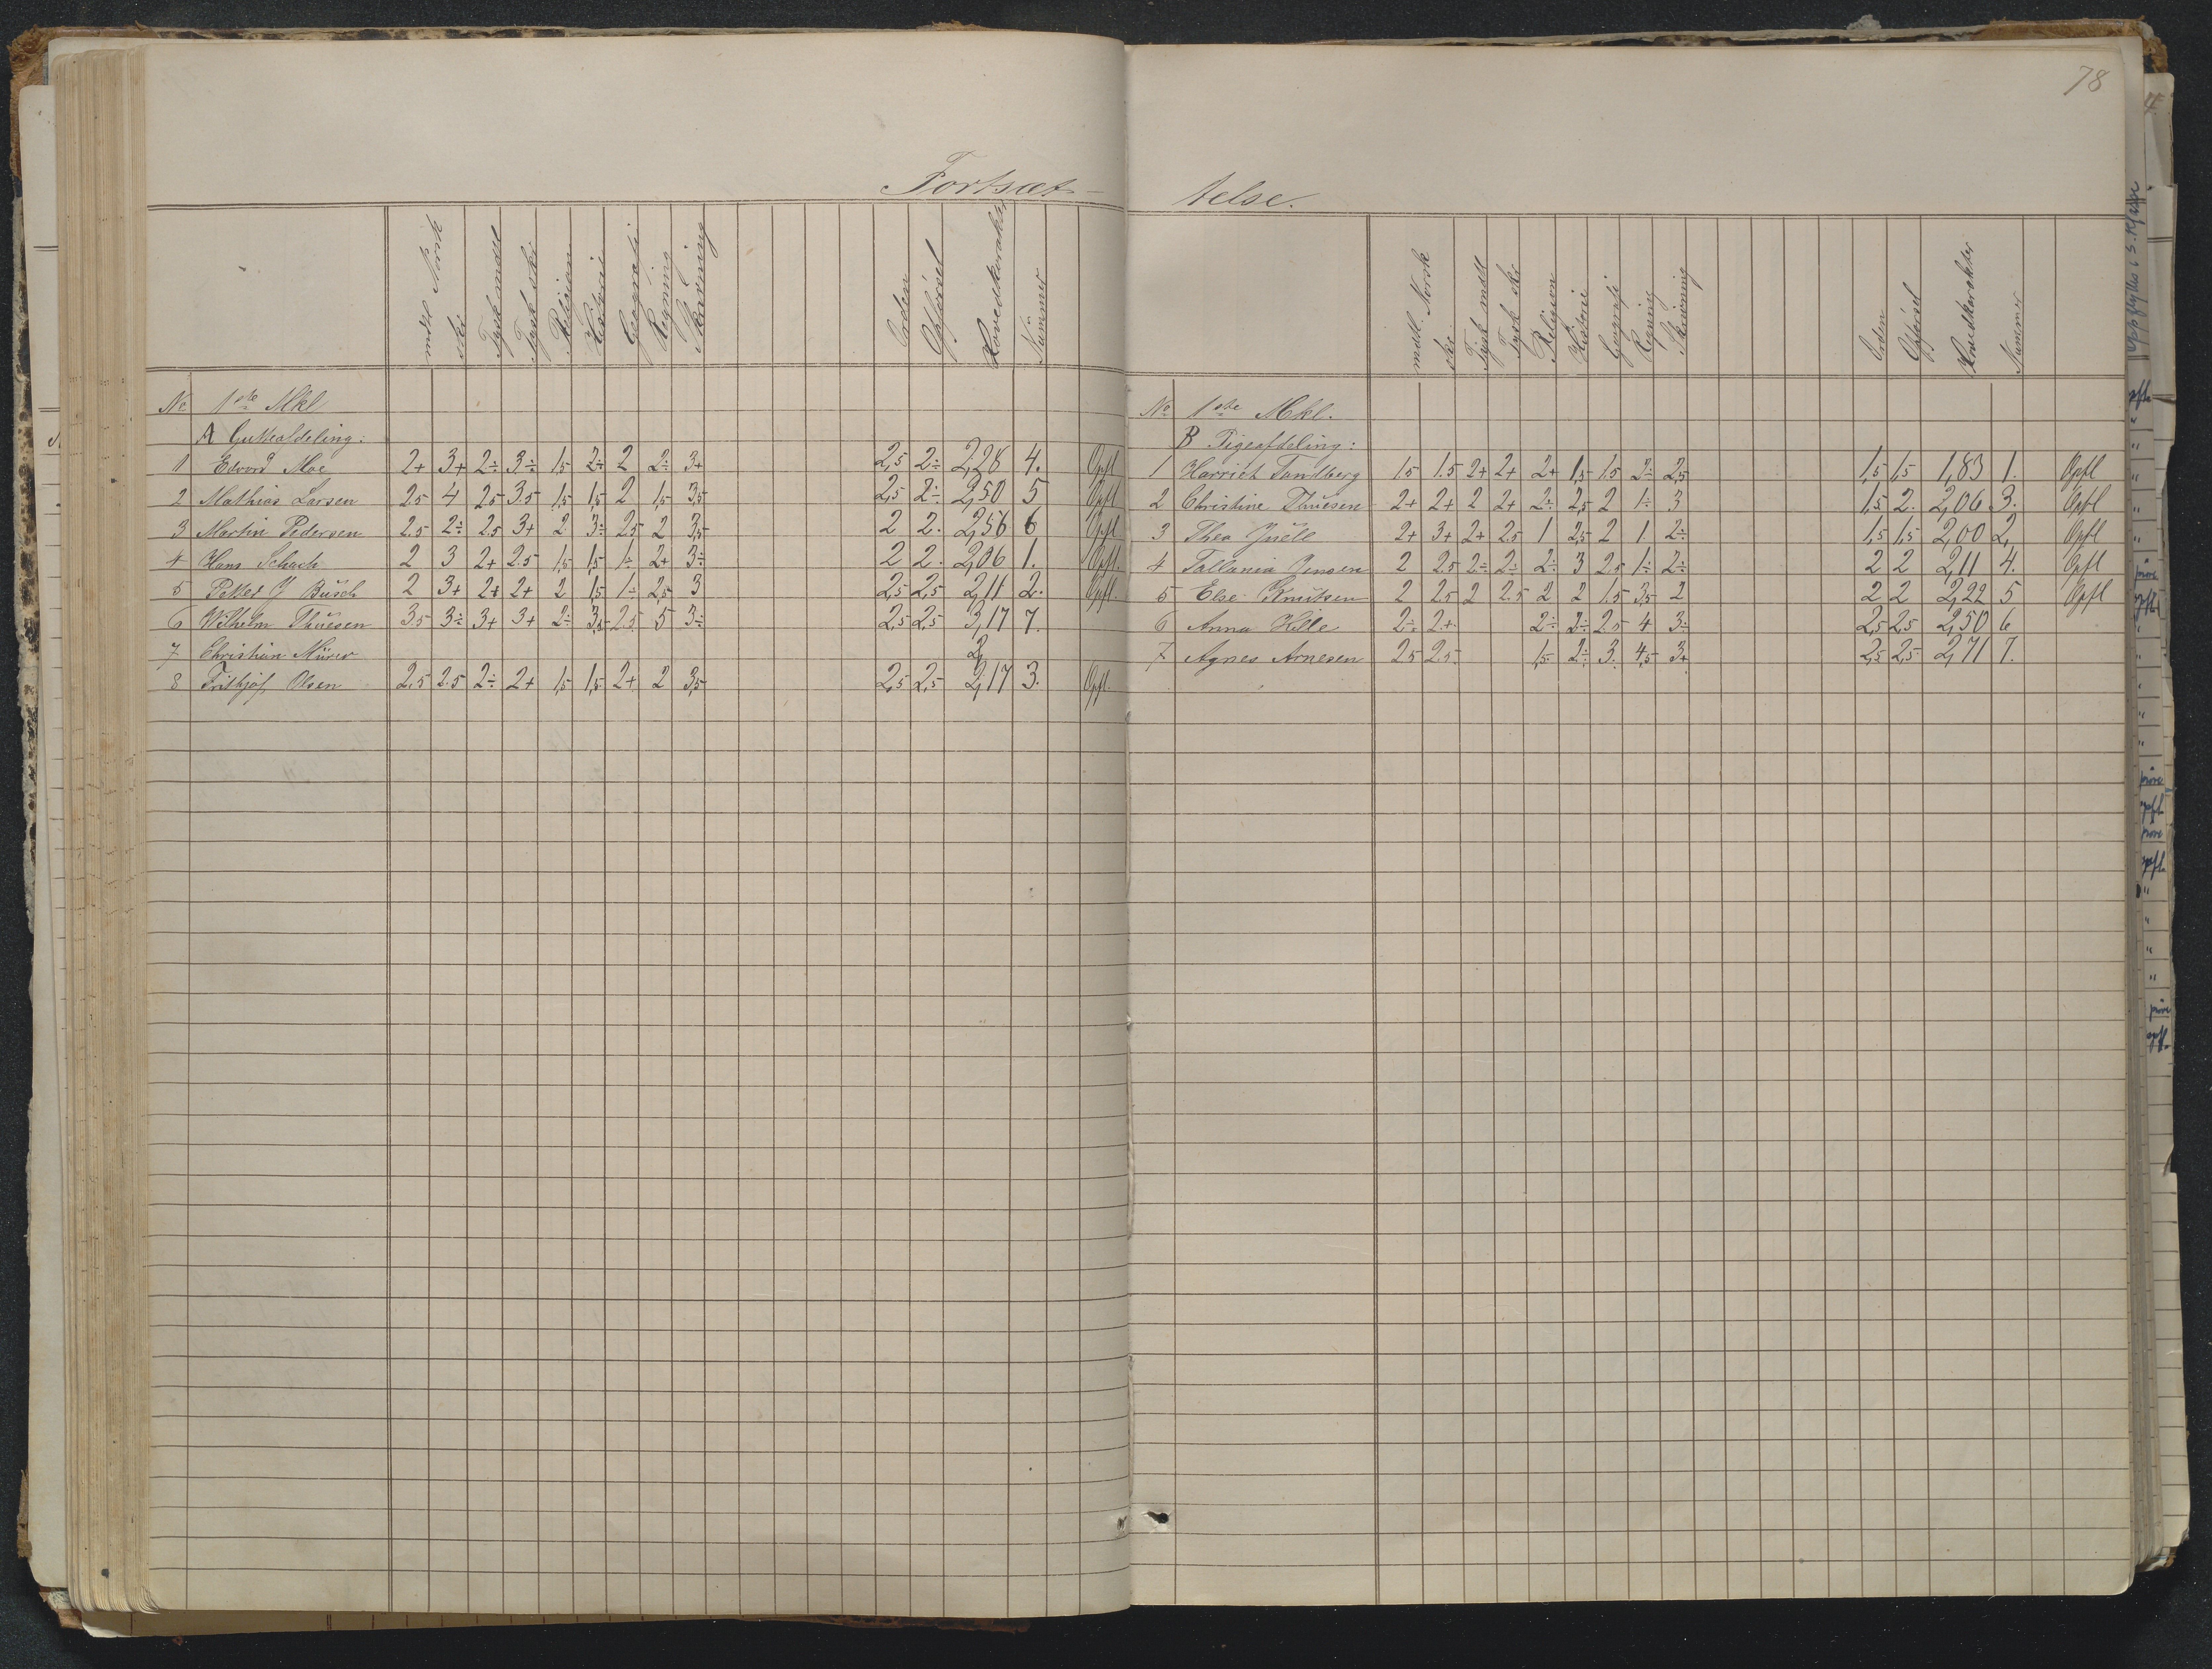 78
Fortsæt-
telse.
mdtl Norsk
skr
Tysk mdtl
Tysk skr
Religion
Historie
Geografi
Regning
Skrivning
Orden
Opførsel
Hovedkarakter
Nummer
No 1ste Mkl
A Gutteafdeling:
1 Edvard Moe 2+ 3+ 2÷ 3÷ 1,5 2÷ 2 2÷ 3+ 2,5 2÷ 2,28 4. Opfl
2 Mathias Larsen 2.5 4 2.5 3.5 1,5 1,5 2 1,5 3,5 2,5 2÷ 2,50 5 Opfl
3 Martin Pedersen 2.5 2÷ 2.5 3+ 2 3÷ 2.5 2 3,5 2 2. 2,56 6 Opfl
4 Hans Schach 2 3 2+ 2.5 1,5 1,5 1÷ 2+ 3÷ 2 2. 2,06 1. Opfl.
5 Petter J Busch 2 3+ 2+ 2+ 2 1,5 1÷ 2,5 3 2,5 2,5 2,11 2. Opfl.
6 Vilhelm Thuesen 3.5 3÷ 3+ 3+ 2÷ 3,5 2.5 5 3÷ 2,5 2,5 3,17 7.
7 Christian Mürer 2,
8 Frithjof Olsen 2.5 2.5 2÷ 2+ 1,5 1,5 2+ 2 3,5 2,5 2,5 2,17 3. Opfl.
mdtl. Norsk
skr
Tysk mdtl
Tysk skr
Religion
Historie
Geografi
Regning
Skrivning
Orden
Opførsel
Hovedkarakter
Nummer
No 1ste Mkl.
B Pigeafdeling:
1 Harriet Sandberg 1.5 1.5 2+ 2+ 2+ 1,5 1.5 2÷ 2,5 1,5 1,5 1,83 1. Opfl
2 Christine Thuesen 2+ 2+ 2 2+ 2÷ 2,5 2 1÷ 3 1,5 2. 2,06 3. Opfl
3 Thea Juell 2+ 3+ 2+ 2.5 1 2,5 2 1. 2÷ 1,5 1,5 2,00 2, Opfl
4 Jensen 2 2.5 2÷ 2÷ 2÷ 3 2.5 1÷ 2÷ 2 2 2,11 4. Opfl
5 Else Knutsen 2 2.5 2 2.5 2 2 1.5 3,5 2 2 2 2,22 5 Opfl
6 Anna Hille 2÷ 2+ 2÷ 2÷ 2.5 4 3÷ 2,5 2,5 2,50 6
7 Agnes Arnesen 2.5 2.5 1,5 2÷ 3. 4,5 3+ 2,5 2,5 2,71 7.